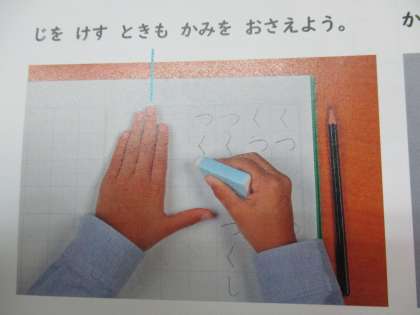 じを けす ときも かみを おさえよう。
か
くつ
くつ
つく つくし
つく